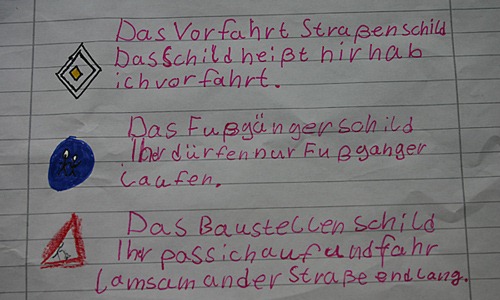 Das Vorfahrt Straßenschild
Das Schild heißt hir hab
ich vorfahrt.
Das Fußgängerschild
Ihr dürfen nur Fußganger
laufen.
Das Baustellenschild
Ihr pass ich auf und fahr
lamsam an der Straße endlang.